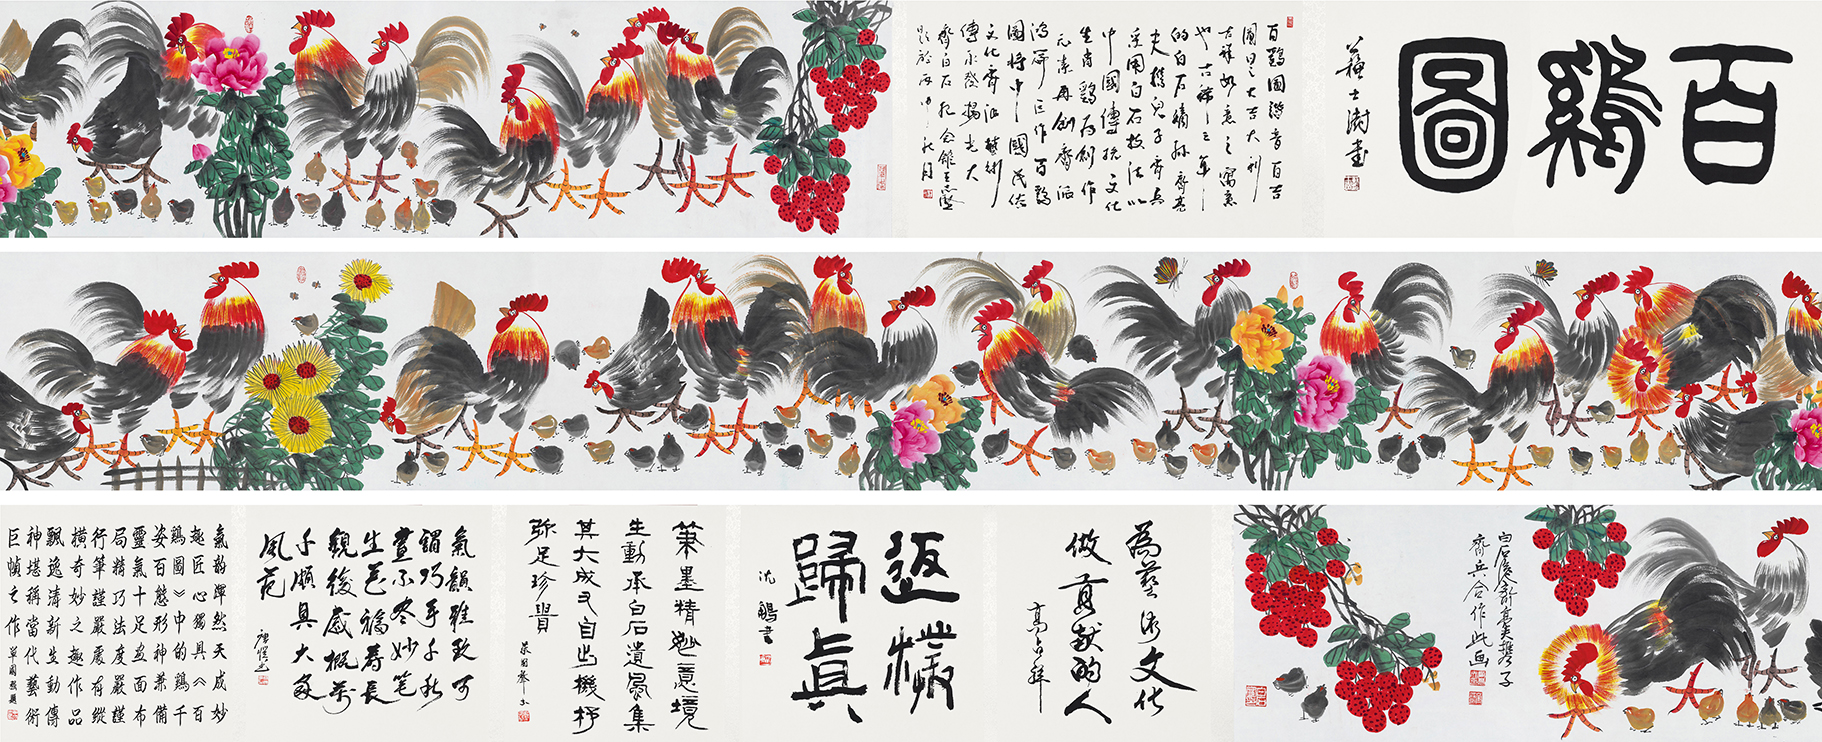 百鷄圖
蘇士澍書
百鷄圖谐音百吉
圖日之大吉大利
吉祥如意之寓意
也古稀之年
的白石嫡孫齊亮
夫携兒子齊兵
采用白石技法以
中國傳統文化
生肖鷄为創作
元素再創齊派
鴻篇巨作百鷄
圖将中國民俗
文化齊派藝術
傳承發揚光大
齊白石紀念館王志
題於丙申秋月
齊亮夫携子
齊兵合作此画
為藝術文化
做貢獻的人
高占祥
返樸
歸真
沈鵬書
筆墨精妙意境
生動承白石遺風集
其大成又自出機杼
弥足珍貴
氣韻雅致可
謂巧手千秋
畫不尽妙笔
生花福壽長
觀後感概萬
千頗具大家
風范
氣韵渾然天成妙
趣匠心獨具《百
鷄圖》中的鷄千
姿百態形神兼備
靈氣十足画面布
局精巧法度嚴謹
行筆謹嚴處有縱
橫奇妙之趣作品
飄逸清新生動傳
神堪稱當代藝術
巨幀之作
單國强題